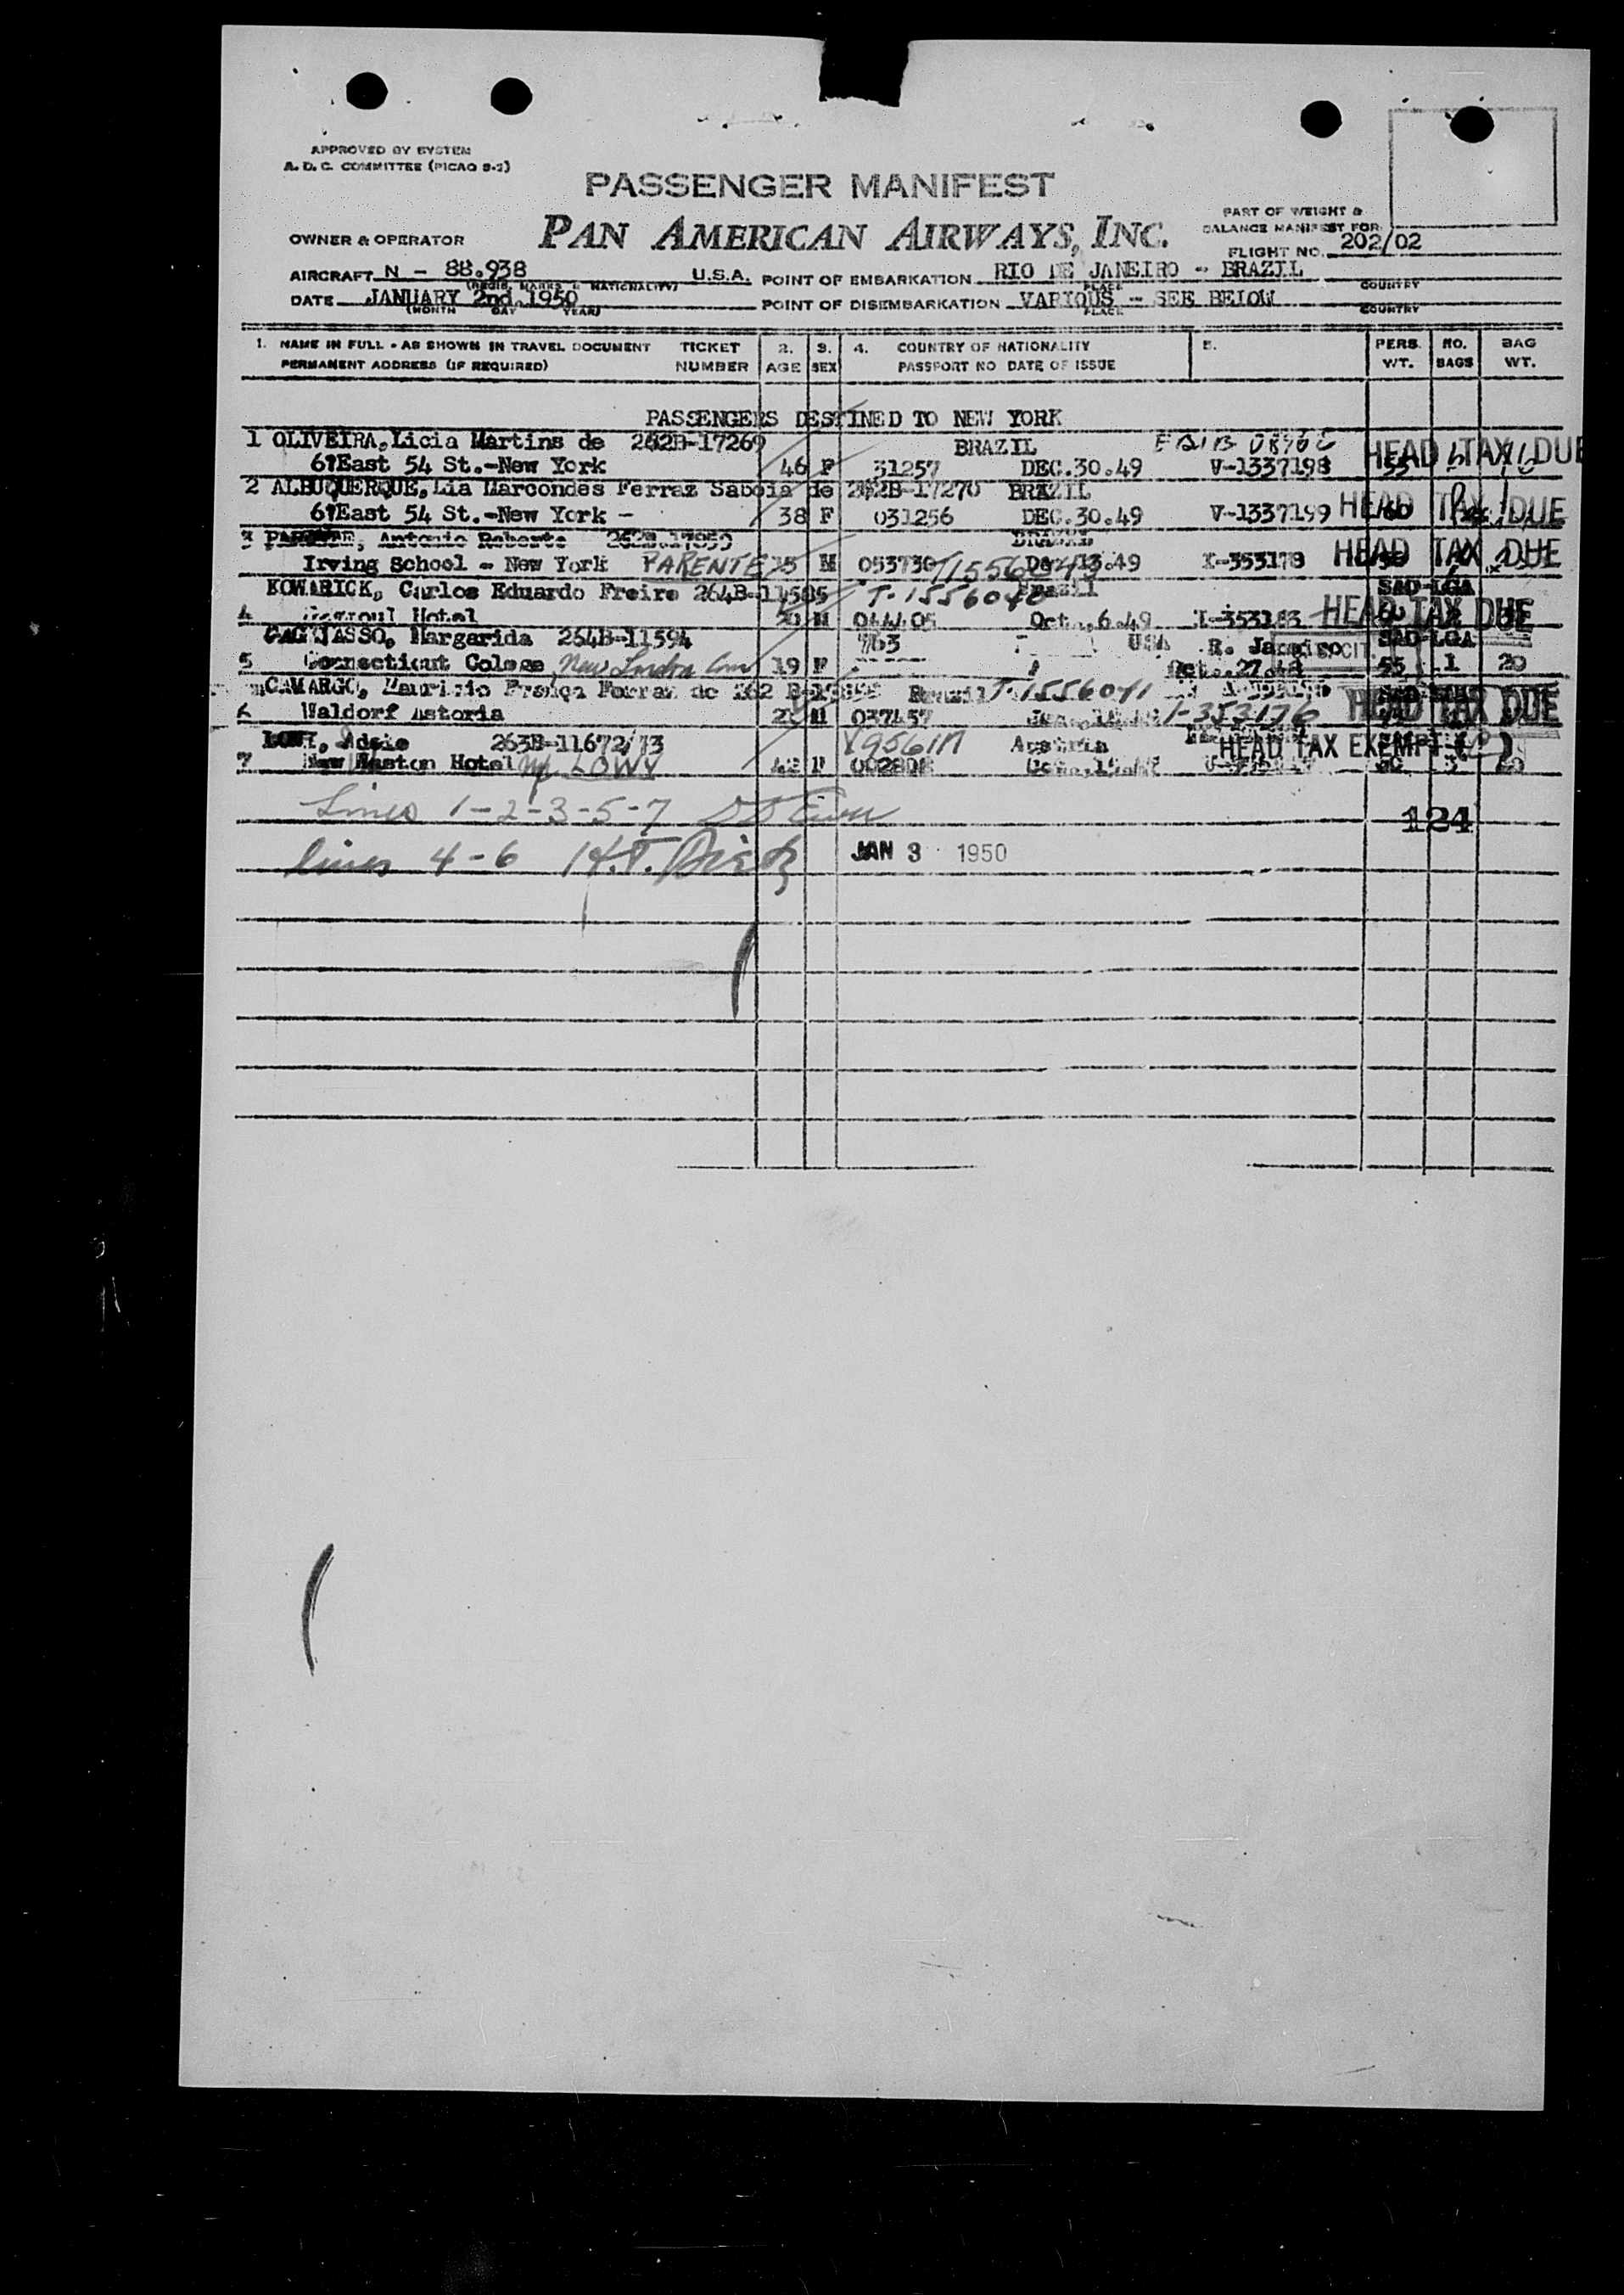 APPROVED BY SYSTEM
A. D. C. COMMITTEE (PICAO S-2)
PASSENGER MANIFEST
PAN AMERICAN AIRWAYS, INC.
PART OF WEIGHT &
BALANCE MANIFEST FOR
OWNER & OPERATOR
FLIGHT NO. 202/02
AIRCRAFT N - 88.938 U.S.A. POINT OF EMBARKATION RIO DE JANEIRO - BRAZIL
(REGIS. MARKS & NATIONALITY) PLACE COUNTRY
DATE JANUARY 2nd.1950 POINT OF DISEMBARKATION VARIOUS - SEE BELOW
(MONTH DAY YEAR) PLACE COUNTRY
1. NAME IN FULL - AS SHOWN IN TRAVEL DOCUMENT TICKET 2. 3. 4. COUNTRY OF NATIONALITY 5. PERS. NO. BAG
PERMANENT ADDRESS (IF REQUIRED) NUMBER AGE SEX PASSPORT NO DATE OF ISSUE WT. BAGS WT.
PASSENGERS DESTINED TO NEW YORK
1 OLIVEIRA, Licia Martins de 262B-17269 BRAZIL HEAD TAX DUE
East 54 St.-New York 46 F 31257 DEC.30.49 V-1337198 55
2 ALBUQUERQUE, Lia Marcondes Ferraz Saboia de 262B-17270 BRAZIL HEAD TAX DUE
East 54 St.-New York - 38 F 031256 DEC.30.49 V-1337199
3 Antonio Roberto BRAZIL HEAD TAX DUE
Irving School - New York PARENTE 15 M 053730 13.49 I-353178
KOWARICK, Carlos Eduardo Freire 264B-11585 T-1556040 Brazil SAO-LGA
4 Hotel 20 M Oct.,6.49 I-353183 HEAD TAX DUE
GAGLIASSO, Margarida 264B-11594 763 USA R. Janeiro CIT. SAO-LGA
5 Connecticut Colege New London Conn 19 F Oct..27.48 55 1 20
CAMARGO, Mauricio França Ferraz de Brazil T-1556041
6 Waldorf Astoria M 037457 I-353176 HEAD TAX DUE
Adele 263B-11672/73 Austria HEAD TAX EXEMPT
7 New Weston Hotel LOWY 42 F
Lines 1-2-3-5-7
124
lines 4-6 JAN 3 1950